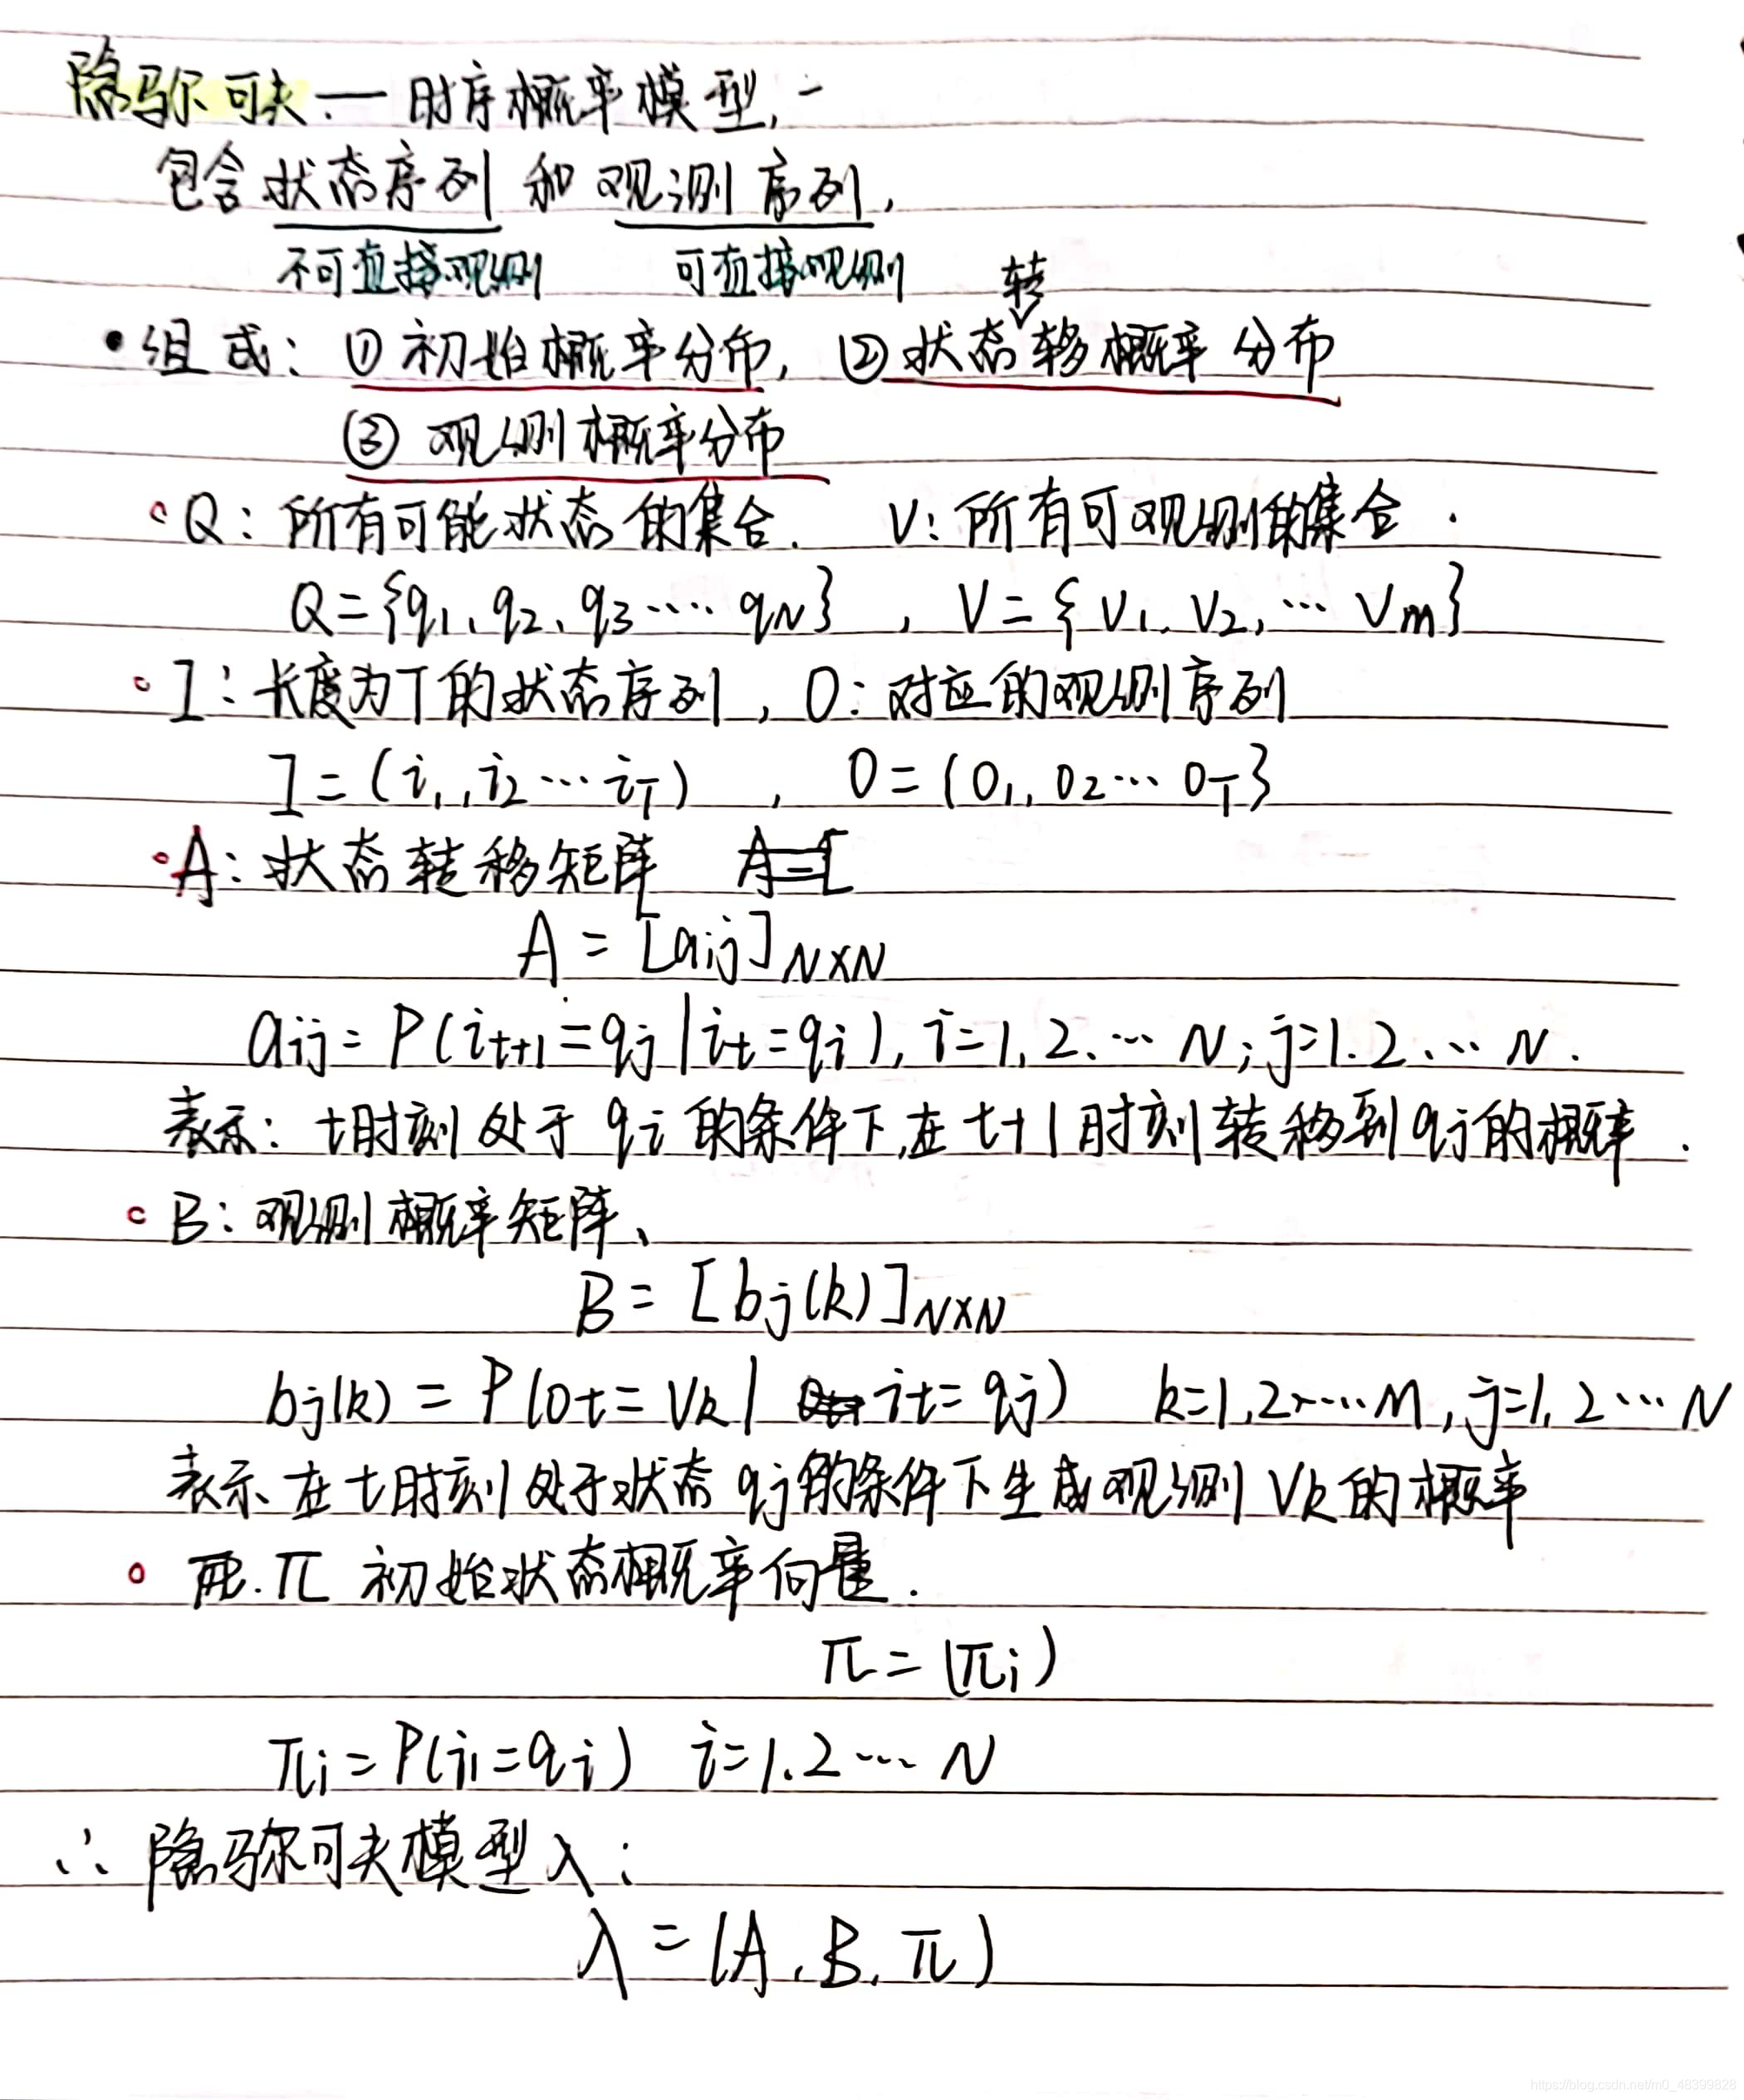 隐马尔可夫 — 时序概率模型,
包含状态序列 和 观测序列,
不可直接观测 可直接观测
转
• 组成: ① 初始概率分布, ② 状态移概率分布
③ 观测概率分布
◦ Q: 所有可能状态的集合. V: 所有可观测的集合.
Q={q1、q2、q3····· qN} , V={V1. V2, ··· Vm}
◦ I: 长度为T的状态序列, O: 对应的观测序列
I=(i1, i2 ··· iT) , O={O1, O2··· OT}
◦ A: 状态转移矩阵 A=[
A = [aij]N×N
aij = P(it+1=qj|it=qi), i=1,2、··· N; j=1.2、··· N.
表示: t时刻处于 qi 的条件下,在 t+1时刻转移到qj的概率.
◦ B: 观测概率矩阵、
B = [bj(k)]N×N
bj(k) = P(ot=Vk| it=qj) k=1,2,····M, j=1,2···N
表示、在t时刻处于状态 qj的条件下生成观测 Vk的概率
◦ π 初始状态概率向量.
π=(πi)
πi=P(i1=qi) i=1.2 ··· N
∴ 隐马尔可夫模型 λ:
λ = (A, B, π)
https://blog.csdn.net/m0_48399828